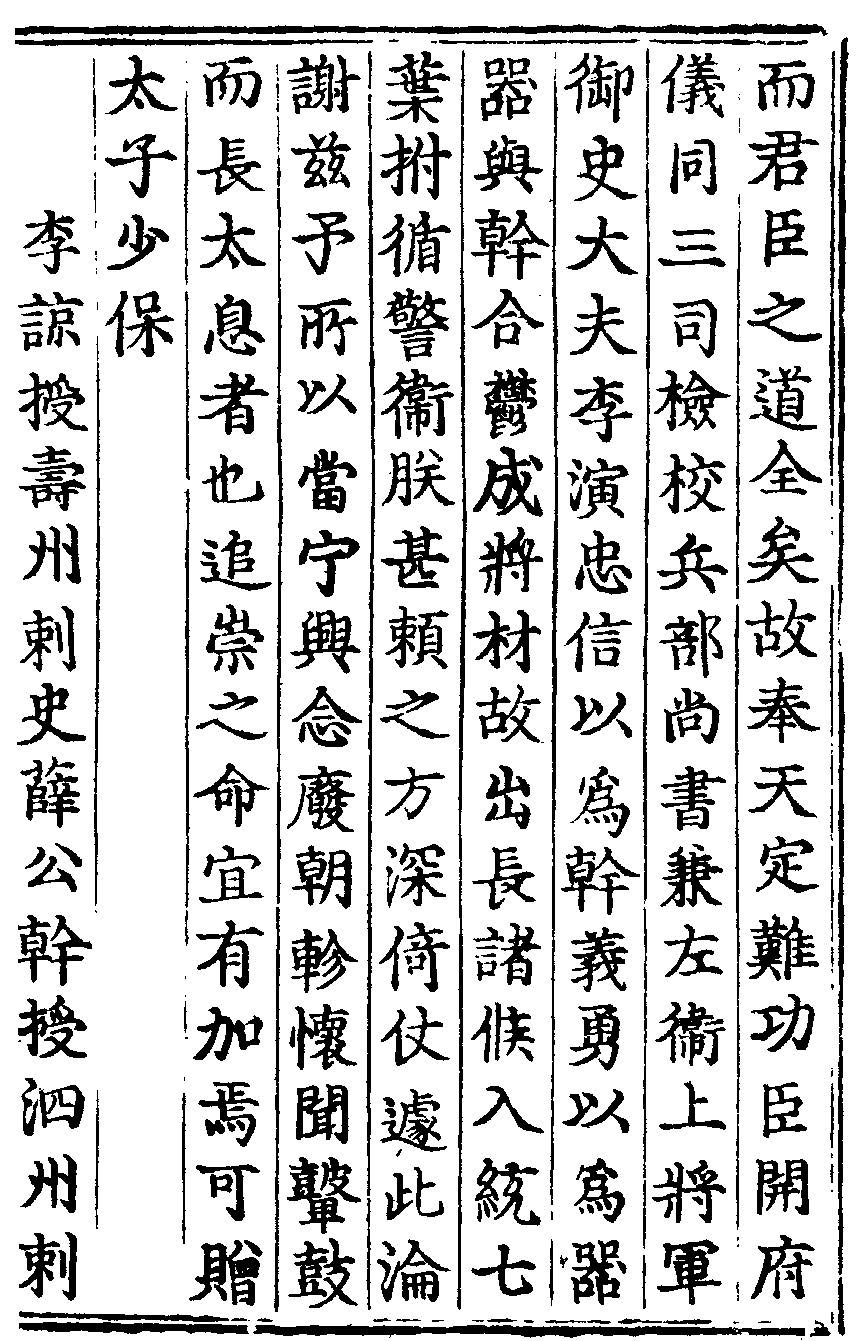 而君臣之道全矣故奉天定難功臣開府
儀同三司檢校兵部尚書兼左衞上將軍
御史大夫李演忠信以爲幹義勇以爲器
器與幹合鬱成將材故出長諸侯入統七
葉拊循警衞朕甚賴之方深倚仗遽此淪
謝兹予所以當宁興念廢朝軫懷聞鼙鼓
而長太息者也追崇之命宜有加焉可贈
太子少保
李諒授壽州刺史薛公幹授泗州刺